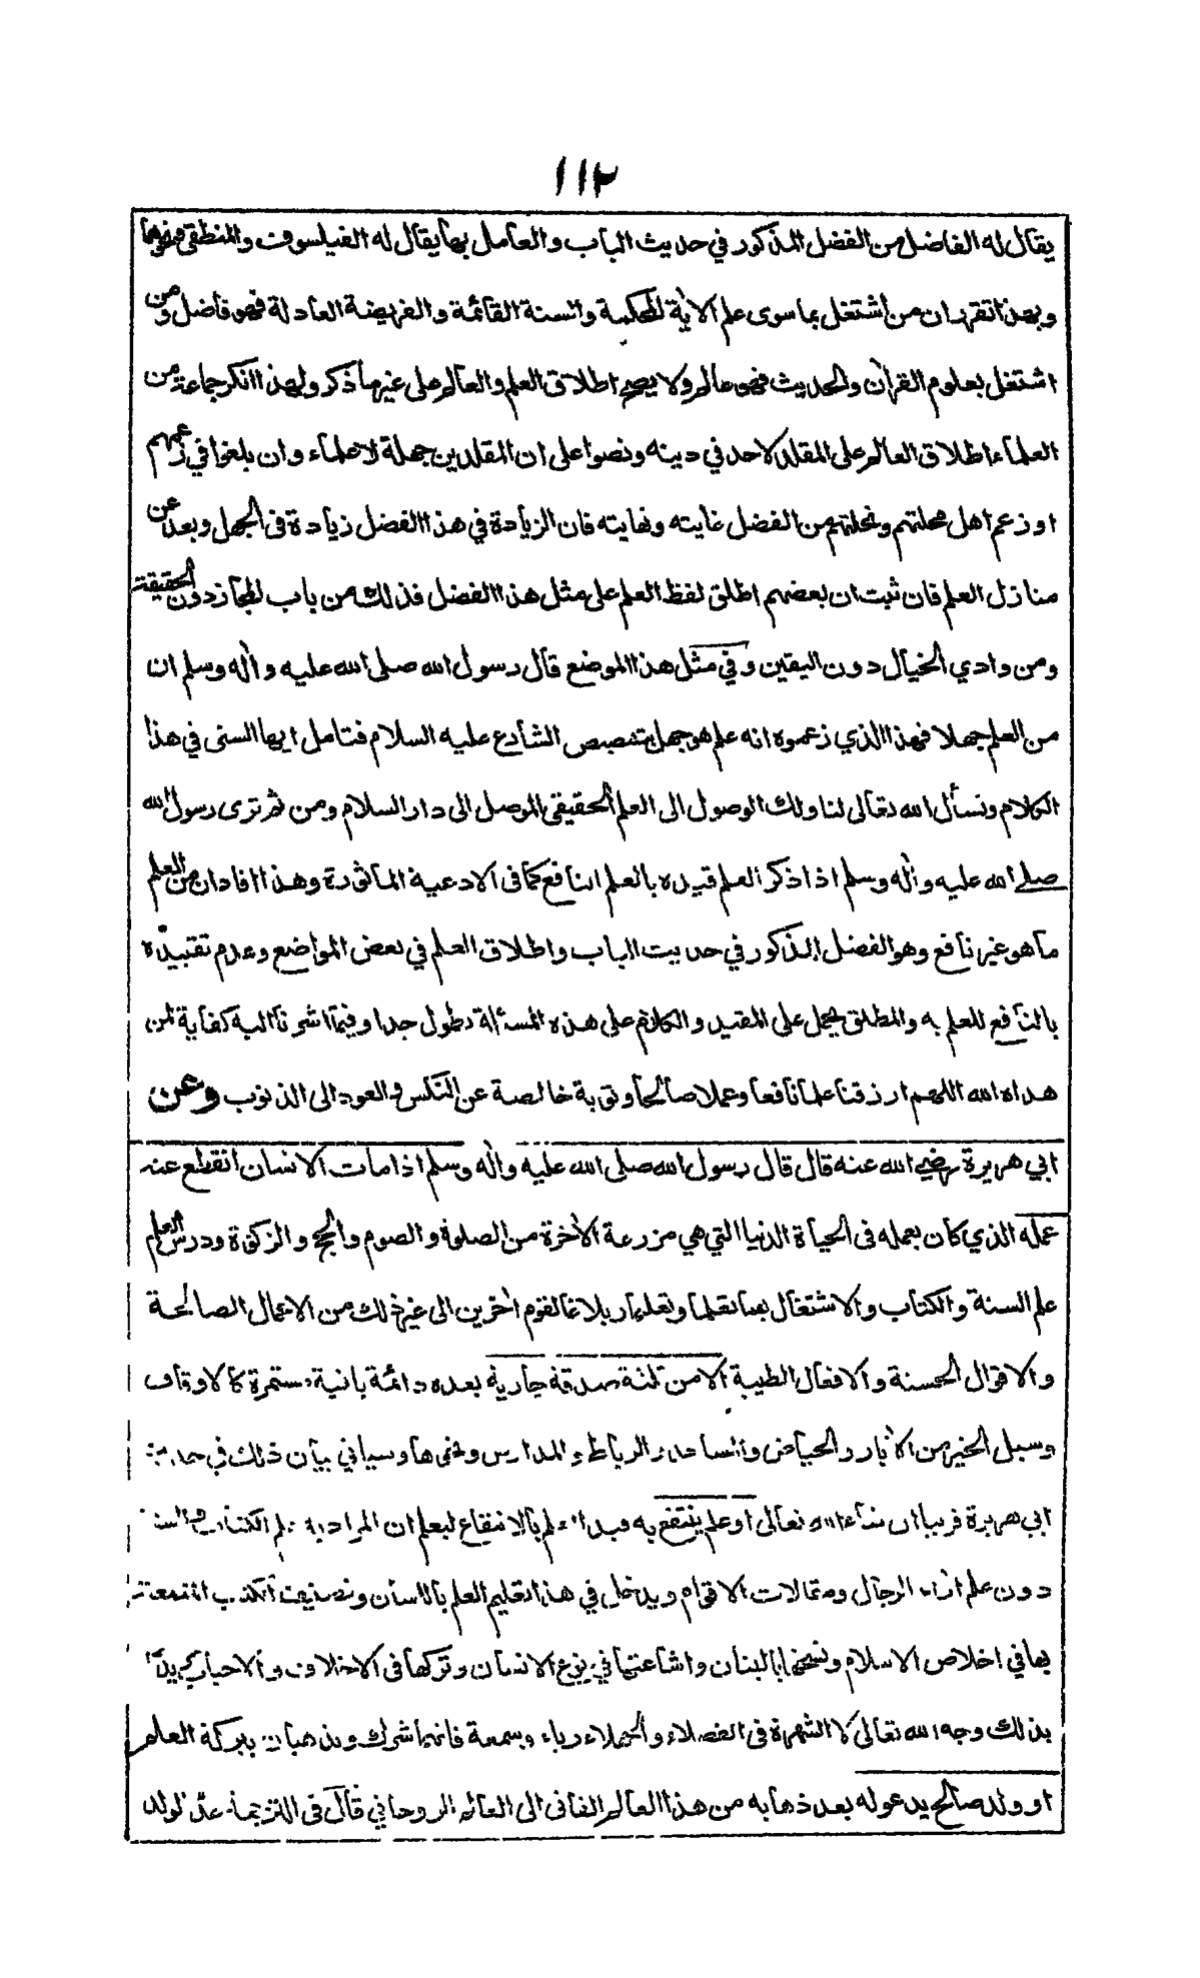 ١١٢
يقال له الفاضل من الفضل المذكور في حديث الباب والعامل بها يقال له الفيلسوف والمنطقي ونحوهما
وبهذا تقرر ان من اشتغل بما سوى علم الاية المحكمة والسنة القائمة والفريضة العادلة فهو فاضل ومن
اشتغل بعلوم القران والحديث فهو عالم ولا يصح اطلاق العلم والعالم على غير ما ذكر ولهذا انكر جماعة من
العلماء اطلاق العالم على المقلد لاحد في دينه ونصوا على ان المقلدين جهلة لا علماء وان بلغوا في زعمهم
او زعم اهل محلتهم ونحلتهم من الفضل غايته ونهايته فان الزيادة في هذا الفضل زيادة في الجهل وبعد عن
منازل العلم فان ثبت ان بعضهم اطلق لفظ العلم على مثل هذا الفضل فذلك من باب المجاز دون الحقيقة
ومن وادي الخيال دون اليقين وفي مثل هذا الموضع قال رسول الله صلى الله عليه واله وسلم ان
من العلم جهلا فهذا الذي زعموه انه علم هو جهل بتنصيص الشارع عليه السلام فتامل ايها السني في هذا
الكلام ونسأل الله تعالى لنا ولك الوصول الى العلم الحقيقي الموصل الى دار السلام ومن ثم ترى رسول الله
صلى الله عليه واله وسلم اذا ذكر العلم قيده بالعلم النافع كما في الادعية المأثورة وهذا افاد ان من العلم
ما هو غير نافع وهو الفضل المذكور في حديث الباب واطلاق العلم في بعض المواضع وعدم تقييده
بالنافع للعلم به والمطلق يحمل على المقيد والكلام على هذه المسألة يطول جدا وفيما اشرنا اليه كفاية لمن
هداه الله اللهم ارزقنا علما نافعا وعملا صالحا وتوبة خالصة عن النكس والعود الى الذنوب وعن
ابي هريرة رضي الله عنه قال قال رسول الله صلى الله عليه واله وسلم اذا مات الانسان انقطع عنه
عمله الذي كان يعمله في الحياة الدنيا التي هي مزرعة الاخرة من الصلوة والصوم والحج والزكوة ودرس العلم
علم السنة والكتاب والاشتغال بهما تعلما وتعليما وبلاغا لقوم اخرين الى غير ذلك من الاعمال الصالحة
والاقوال الحسنة والافعال الطيبة الا من ثلثة صدقة جارية بعده دائمة باقية مستمرة كالاوقاف
وسبل الخير من الأبار والحياض والمساجد والرباط والمدارس ونحوها وسياتي بيان ذلك في حديث
ابي هريرة قريبا ان شاء الله تعالى او علم ينتفع به قيد العلم بالانتفاع ليعلم ان المراد به علم الكتاب والسنة
دون علم اراء الرجال ومقالات الاقوام ويدخل في هذا تعليم العلم باللسان وتصنيف الكتب المنتفعة
بها في اخلاص الاسلام ونسخها بالبنان واشاعتها في نوع الانسان وتركها في الاخلاف والاحباب يريد
بذلك وجه الله تعالى لا الشهرة في الفضلاء والجهلاء رياء وسمعة فانهما شرك ويذهبان ببركة العلم
او ولد صالح يدعو له بعد ذهابه من هذا العالم الفاني الى العالم الروحاني قال في الترجمة عد الولد